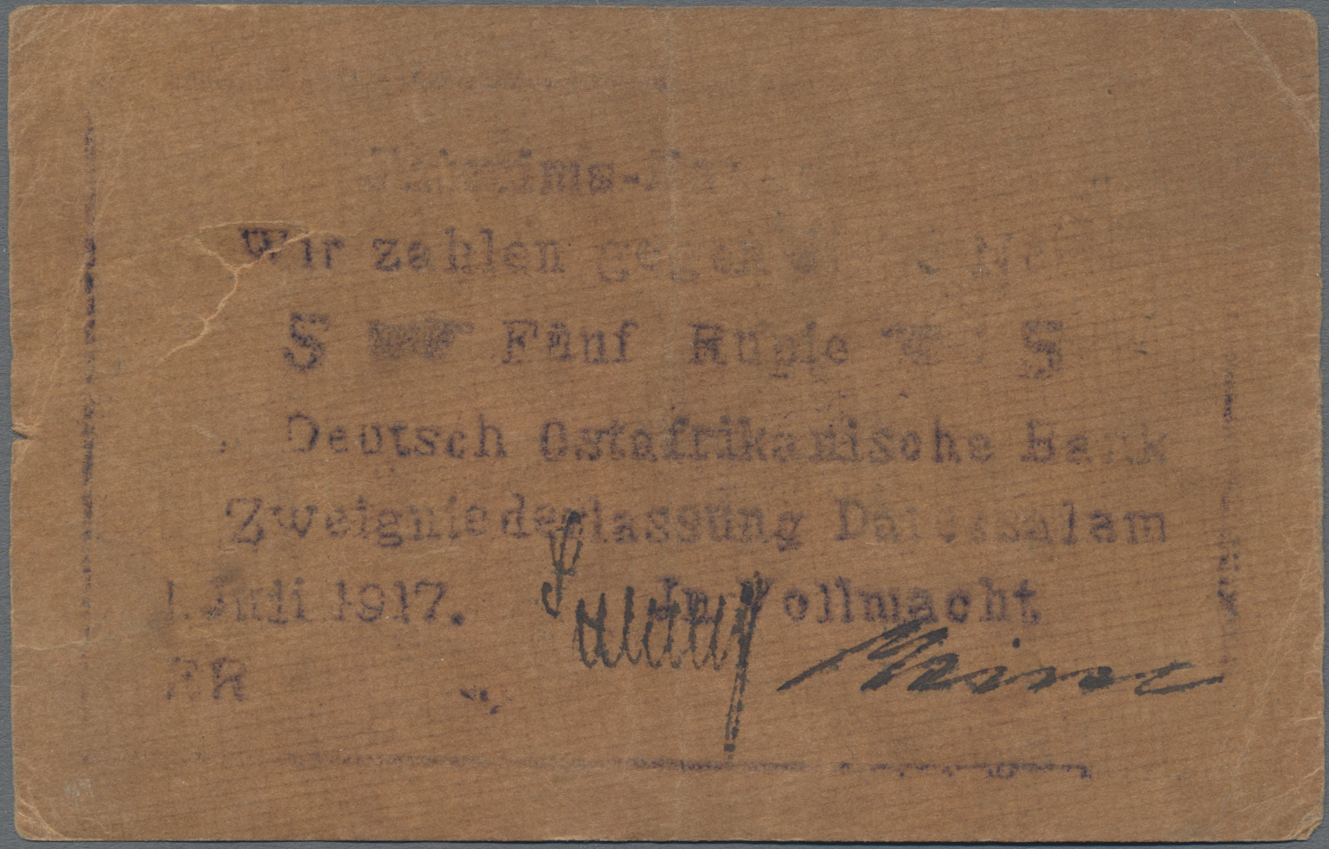 Wir zahlen gegen
5 Fünf Rupie 5
Deutsch Ostafrikanische Bank
Zweigniederlassung Daressalam
1. Juli 1917. In Vollmacht
ER